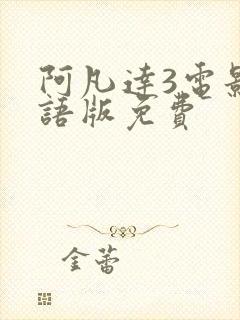 阿凡達3電影
語版免費
金蕾